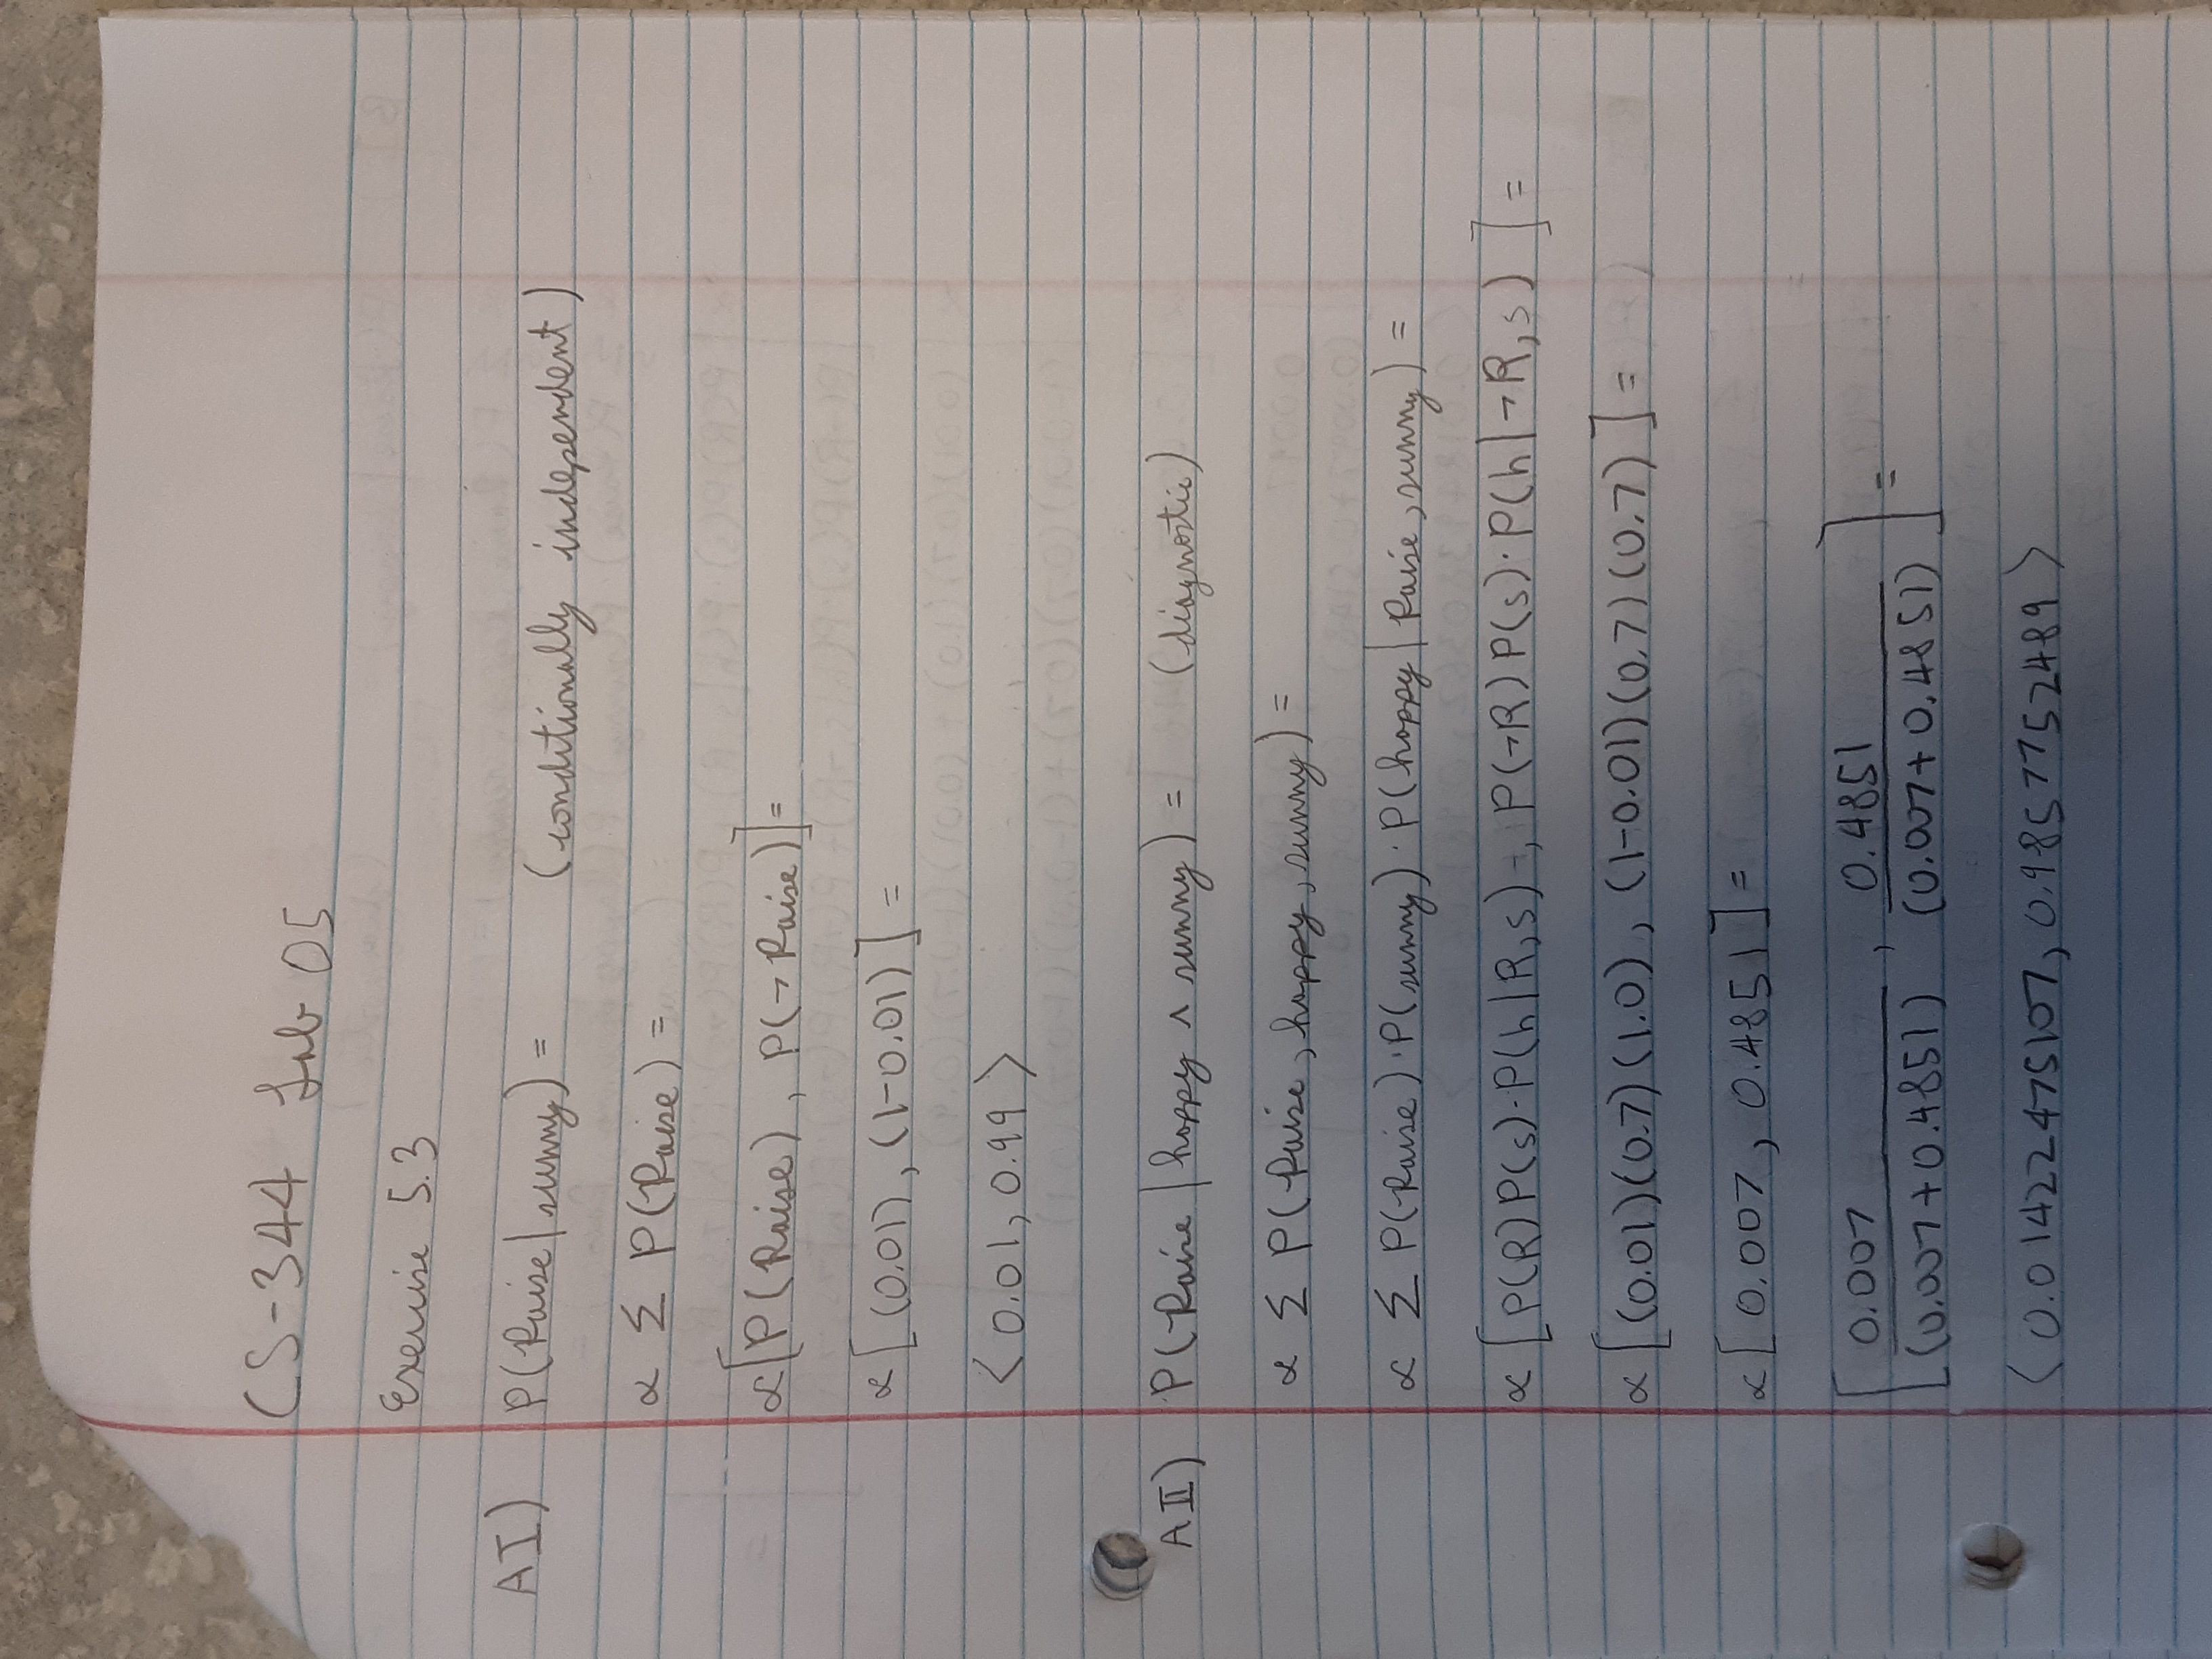 CS-344 Lab 05
Exercise 5.3
AI) P(Raise | sunny) = (conditionally independent)
∝ Σ P(Raise) =
∝ [P(Raise), P(¬Raise)] =
∝ [(0.01), (1-0.01)] =
⟨0.01, 0.99⟩
AII) P(Raise | happy ∧ sunny) = (diagnostic)
∝ Σ P(Raise, happy, sunny) =
∝ Σ P(Raise) · P(sunny) · P(happy | Raise, sunny) =
∝ [P(R) P(s) · P(h | R, s) , P(¬R) P(s) · P(h | ¬R, s)] =
∝ [(0.01)(0.7)(1.0), (1-0.01)(0.7)(0.7)] =
∝ [0.007, 0.4851] =
[0.007 / (0.007+0.4851) , 0.4851 / (0.007+0.4851)] =
⟨0.01422475107, 0.9857752489⟩